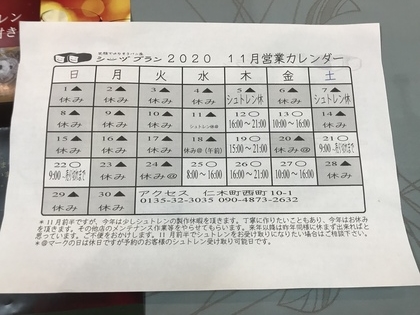 シーヅプラン 2020 11月営業カレンダー
日 月 火 水 木 金 土
1▲ 2▲ 3▲ 4▲ 5▲ 6▲ 7▲
休み 休み 休み 休み シュトレン休 休み シュトレン休
8▲ 9▲ 10▲ 11▲ 12○ 13○ 14▲
休み 休み 休み 16:00~21:00 16:00~21:00 休み
15▲ 16▲ 17▲ 18▲ 19○ 20▲ 21○
休み 休み 休み 休み@(午前) 15:00~21:00 休み@
22○ 23▲ 24▲ 25○ 26○ 27○ 28▲
休み 休み@ 8:00~16:00 16:00~21:00 10:00~16:00 休み
29▲ 30▲ アクセス 仁木町西町10-1
休み 休み 0135-32-3035 090-4873-2632
*11月前半ですが、今年は少しシュトレンの製作休暇を頂きます。丁寧に作りたいこともあり、今年はお休み
を頂きます。その他店のメンテナンス作業等をやらせてもらいます。来年以降は昨年同様に休まず出来ればと
思っています。ご不便をおかけします。11月前半でシュトレンをお受け取りになりたい場合はご相談下さい。
*@マークの日は休日ですが予約のお客様のシュトレン受け取り可能日です。